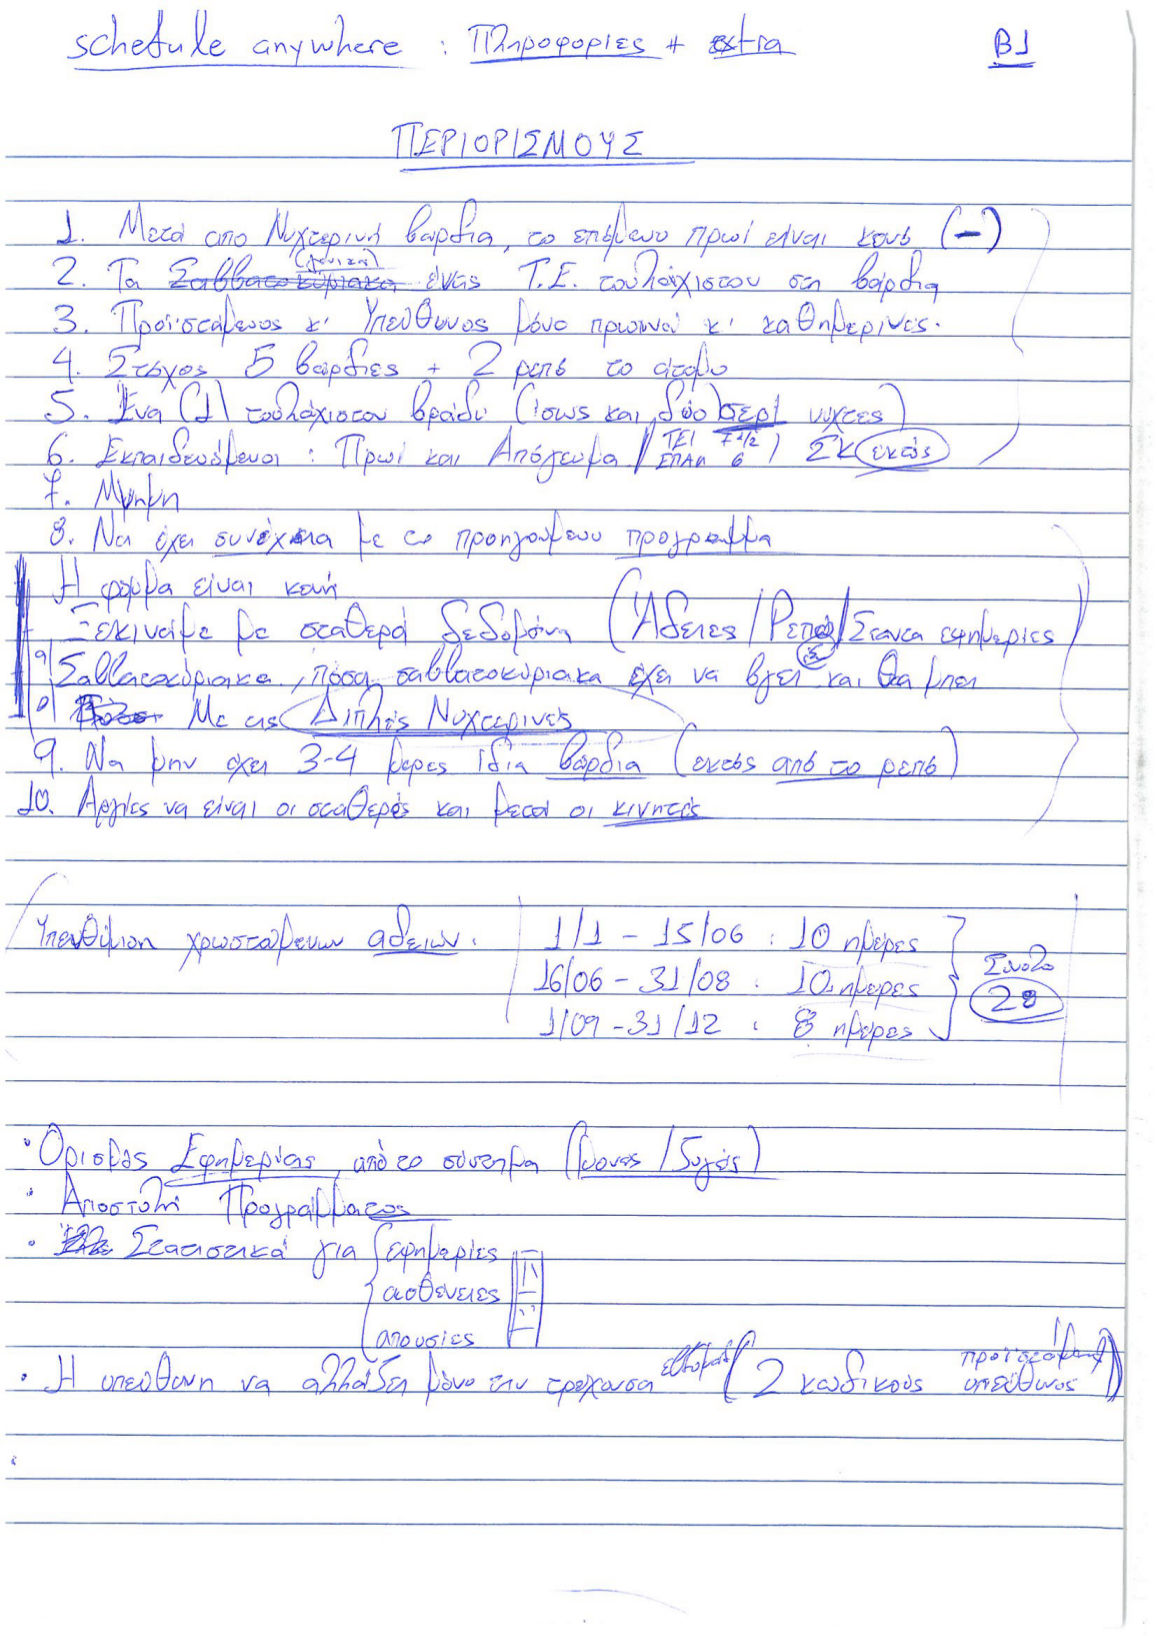 schedule anywhere : Πληροφορίες + extra B1
ΠΕΡΙΟΡΙΣΜΟΥΣ
1. Μετά απο Νυχτερινή βάρδια, το επόμενο πρωί είναι κενό (-)
2. Τα Σαββατοκύριακα (γενικά) ένας Τ.Ε. τουλάχιστον στη βάρδια
3. Προϊστάμενος κ' Υπεύθυνος μόνο πρωινοί κ' καθημερινές.
4. Στόχος 5 βάρδιες + 2 ρεπό το άτομο
5. Ένα (1) τουλάχιστον βράδυ (ίσως και δύο σερί νύχτες)
6. Εκπαιδευόμενοι : Πρωί και Απόγευμα / ΤΕΙ 7 1/2 ΕΠΑΛ 6 / ΣΚ εκτός
7. Μνήμη
8. Να έχει συνέχεια με το προηγούμενο πρόγραμμα
Η φόρμα είναι κενή
Ξεκινάμε με σταθερά δεδομένα (Άδειες / Ρεπό / Σταντα εφημερίες
α) Σαββατοκύριακα, πόσα σαββατοκύριακα έχει να βγει και θα μπει
β) Με τις Διπλές Νυχτερινές
9. Να μην έχει 3-4 μέρες ίδια βάρδια (εκτός από το ρεπό)
10. Αργίες να είναι οι σταθερές και μετά οι κινητές
Υπενθύμιση χρωστούμενων αδειών : 1/1 - 15/06 : 10 ημέρες
16/06 - 31/08 : 10 ημέρες Σύνολο
1/09 - 31/12 : 8 ημέρες 28
· Ορισμός Εφημερίας από το σύστημα (μονές / ζυγές)
· Αποστολή Προγράμματος
· Στατιστικά για εφημερίες
ασθένειες
απουσίες
· Η υπεύθυνη να αλλάζει μόνο την τρέχουσα εβδομάδα (2 κωδικούς προϊστάμενη υπεύθυνος)